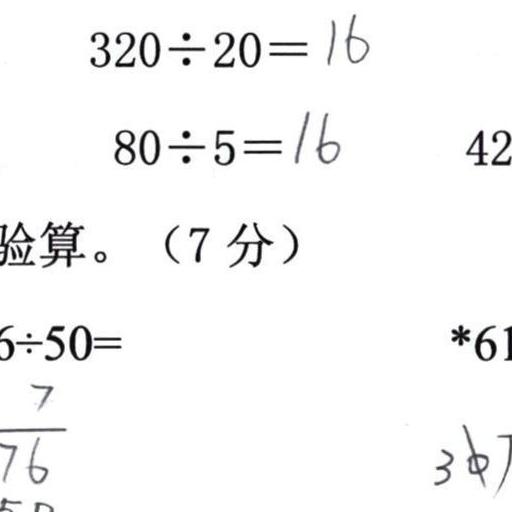 320÷20=16
80÷5=16 42
验算。（7分）
6÷50= *61
7
76 36
50